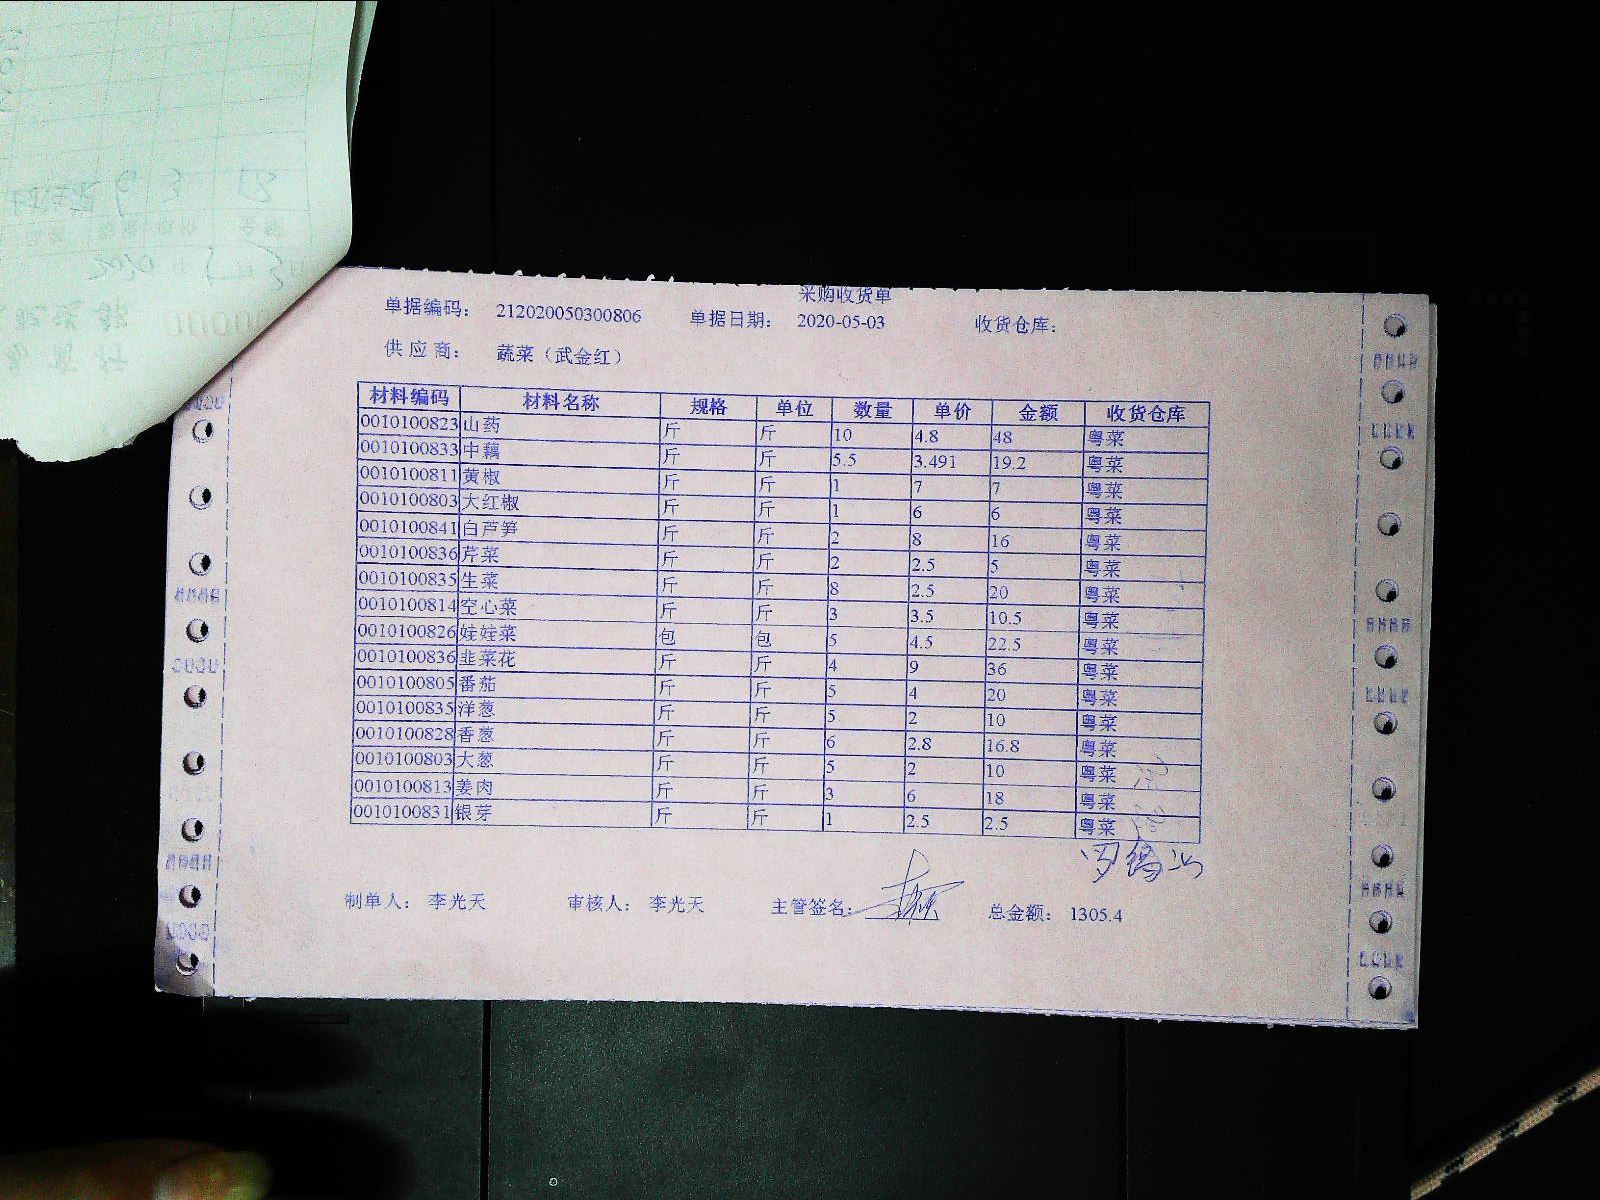 采购收货单
单据编码: 212020050300806 单据日期: 2020-05-03 收货仓库:
供应商: 蔬菜（武金红）
材料编码 材料名称 规格 单位 数量 单价 金额 收货仓库
0010100823 山药 斤 斤 10 4.8 48 粤菜
0010100833 中藕 斤 斤 5.5 3.491 19.2 粤菜
0010100811 黄椒 斤 斤 1 7 7 粤菜
0010100803 大红椒 斤 斤 1 6 6 粤菜
0010100841 白芦笋 斤 斤 2 8 16 粤菜
0010100836 芹菜 斤 斤 2 2.5 5 粤菜
0010100835 生菜 斤 斤 8 2.5 20 粤菜
0010100814 空心菜 斤 斤 3 3.5 10.5 粤菜
0010100826 娃娃菜 包 包 5 4.5 22.5 粤菜
0010100836 韭菜花 斤 斤 4 9 36 粤菜
0010100805 番茄 斤 斤 5 4 20 粤菜
0010100835 洋葱 斤 斤 5 2 10 粤菜
0010100828 香葱 斤 斤 6 2.8 16.8 粤菜
0010100803 大葱 斤 斤 5 2 10 粤菜
0010100813 姜肉 斤 斤 3 6 18 粤菜
0010100831 银芽 斤 斤 1 2.5 2.5 粤菜
制单人: 李光天 审核人: 李光天 主管签名: 总金额: 1305.4